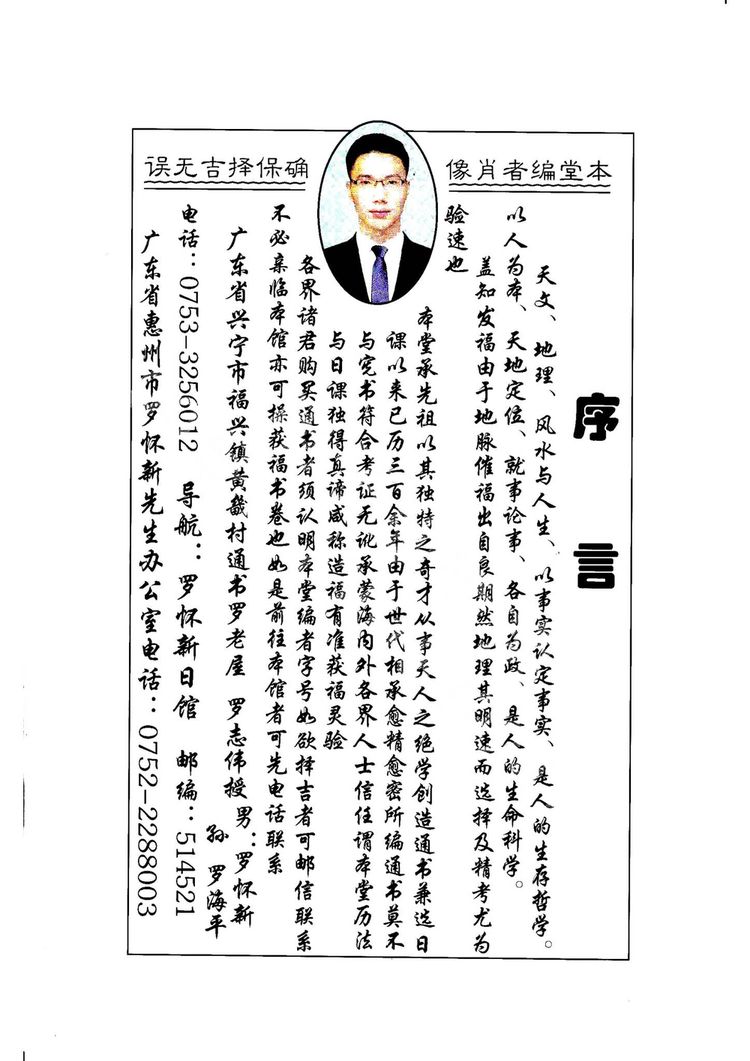 本堂编者肖像
确保择吉无误
序言
天文、地理、风水与人生、以事实认定事实、是人的生存哲学。
以人为本、天地定位、就事论事、各自为政、是人的生命科学。
盖知发福由于地脉催福出自良期然地理其明速而选择及精考尤为
验速也
本堂承先祖以其独特之奇才从事天人之绝学创造通书兼选日
课以来已历三百余年由于世代相承愈精愈密所编通书莫不
与宪书符合考证无讹承蒙海内外各界人士信任谓本堂历法
与日课独得真谛咸称造福有准获福灵验
各界诸君购买通书者须认明本堂编者字号如欲择吉者可邮信联系
不必亲临本馆亦可操获福书卷也如是前往本馆者可先电话联系
广东省兴宁市福兴镇黄畿村通书罗老屋 罗志伟授男：罗怀新
孙 罗海平
电话：0753-3256012 导航：罗怀新日馆 邮编：514521
广东省惠州市罗怀新先生办公室电话：0752-2288003